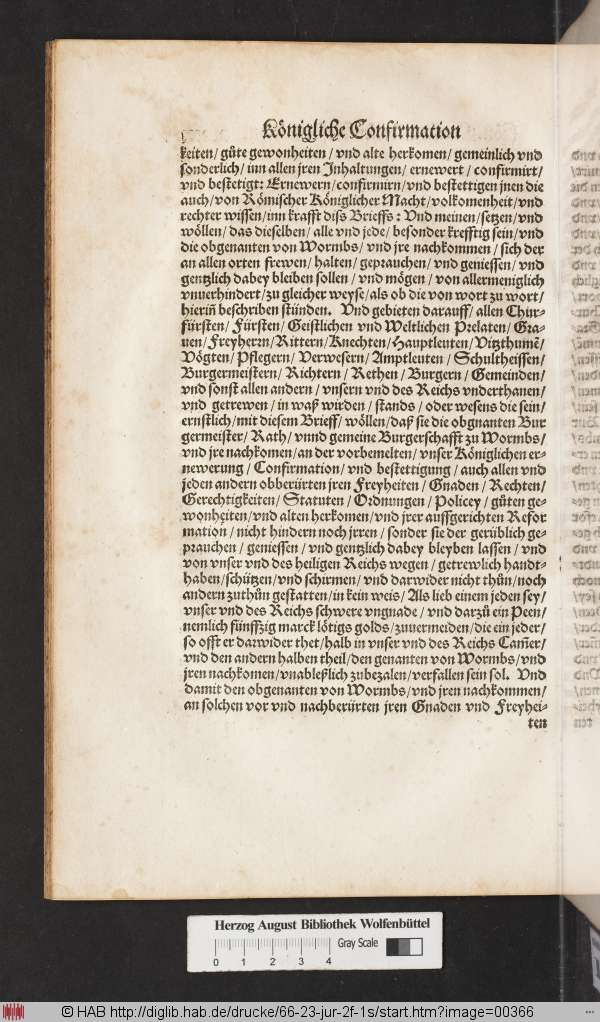 Königliche Confirmation
keiten/ gůte gewonheiten/ vnd alte herkomen/ gemeinlich vnd
sonderlich/ inn allen jren Inhaltungen/ ernewert/ confirmirt/
vnd bestetigt: Ernewern/ confirmirn/ vnd bestettigen jnen die
auch/ von Römischer Königlicher Macht/ volkomenheit/ vnd
rechter wissen/ inn krafft diss Brieffs: Vnd meinen/ setzen/ vnd
wöllen/ das dieselben/ alle vnd jede/ besonder krefftig sein/ vnd
die obgenanten von Wormbs/ vnd jre nachkommen/ sich der
an allen orten frewen/ halten/ geprauchen/ vnd geniessen/ vnd
gentzlich dabey bleiben sollen/ vnd mögen/ von allermeniglich
vnuerhindert/ zu gleicher weyse/ als ob die von wort zu wort/
hieriñ beschriben stünden. Vnd gebieten darauff/ allen Chur-
fürsten/ Fürsten/ Geistlichen vnd Weltlichen Prelaten/ Gra-
uen/ Freyherrn/ Rittern/ Knechten/ Hauptleuten/ Vitzthumẽ/
Vögten/ Pflegern/ Verwesern/ Amptleuten/ Schultheissen/
Burgermeistern/ Richtern/ Rethen/ Burgern/ Gemeinden/
vnd sonst allen andern/ vnsern vnd des Reichs vnderthanen/
vnd getrewen/ in waß wirden/ stands/ oder wesens die sein/
ernstlich/ mit diesem Brieff/ wöllen/ daß sie die obgnanten Bur
germeister/ Rath/ vnnd gemeine Burgerschafft zu Wormbs/
vnd jre nachkomen/ an der vorbemelten/ vnser Königlichen er-
newerung/ Confirmation/ vnd bestettigung/ auch allen vnd
jeden andern obberürten jren Freyheiten/ Gnaden/ Rechten/
Gerechtigkeiten/ Statuten/ Ordnungen/ Policey/ gůten ge-
wonheiten/ vnd alten herkomen/ vnd jrer aussgerichten Refor
mation/ nicht hindern noch jrren/ sonder sie der gerüblich ge-
prauchen/ geniessen/ vnd gentzlich dabey bleyben lassen/ vnd
von vnser vnd des heiligen Reichs wegen/ getrewlich handt-
haben/ schützen/ vnd schirmen/ vnd darwider nicht thůn/ noch
andern zuthůn gestatten/ in kein weis/ Als lieb einem jeden sey/
vnser vnd des Reichs schwere vngnade/ vnd darzů ein Peen/
nemlich fünffzig marck lötigs golds/ zuuermeiden/ die ein jeder/
so offt er darwider thet/ halb in vnser vnd des Reichs Cam̃er/
vnd den andern halben theil/ den genanten von Wormbs/ vnd
jren nachkomen/ vnableßlich zubezalen/ verfallen sein sol. Vnd
damit den obgenanten von Wormbs/ vnd jren nachkommen/
an solchen vor vnd nachberürten jren Gnaden vnd Freyhei-
ten
Herzog August Bibliothek Wolfenbüttel
0 1 2 3 4 Gray Scale
© HAB http://diglib.hab.de/drucke/66-23-jur-2f-1s/start.htm?image=00366